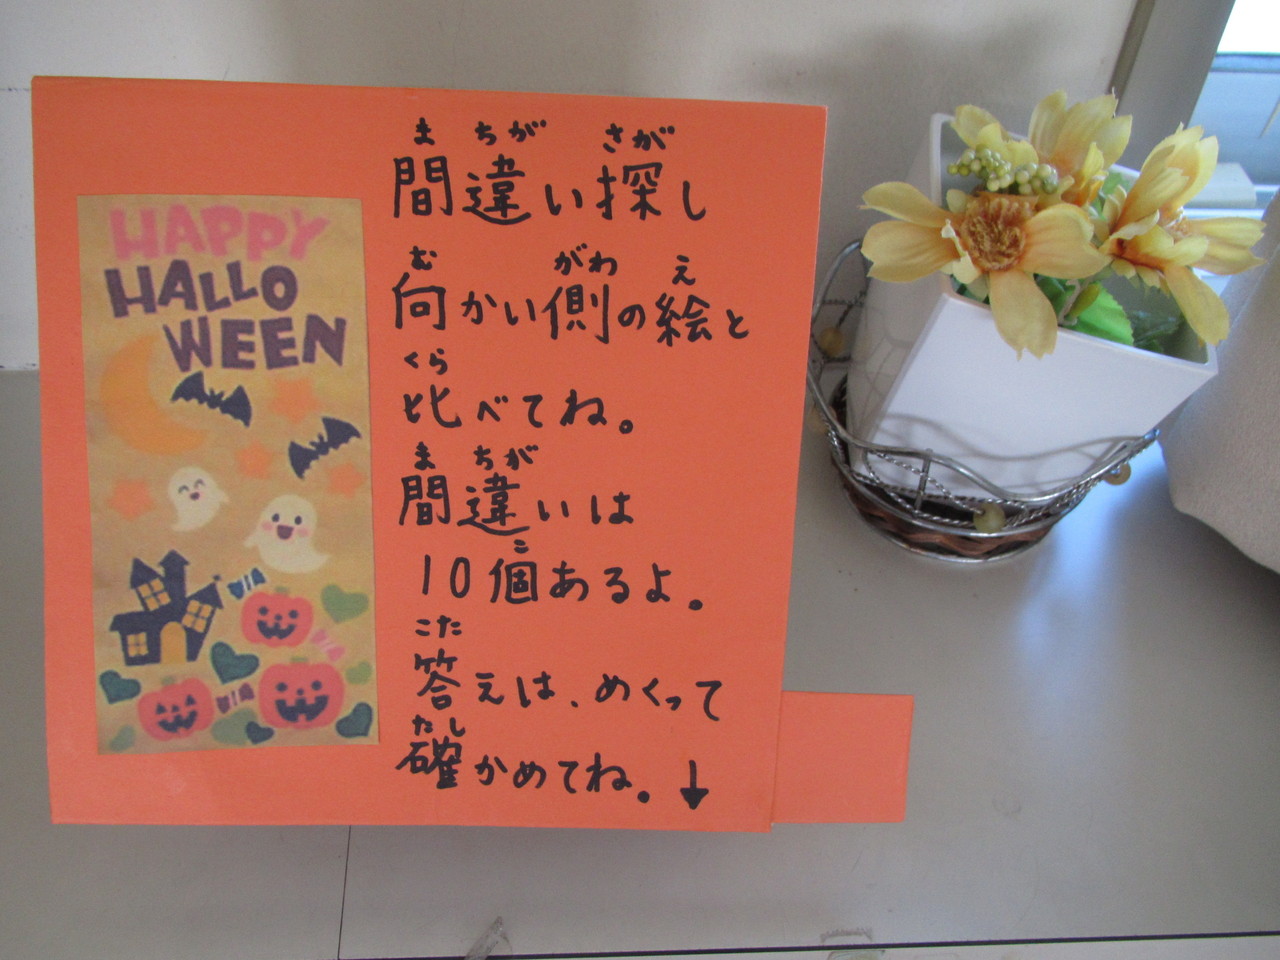 HAPPY
HALLO
WEEN
ま ちが さが
間違い探し
む がわ え
向かい側の絵と
くら
比べてね。
ま ちが
間違いは
こ
10個あるよ。
こた
答えは、めくって
たし
確かめてね。↓